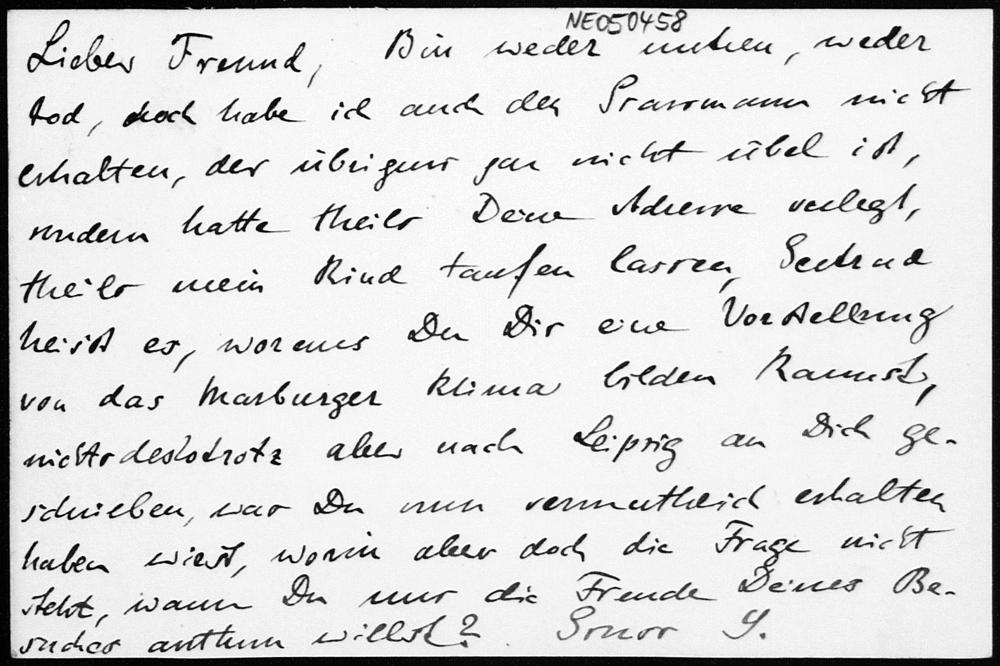 NE050458
Lieber Freund, Bin weder untreu, weder
tod, doch habe ich auch den Grassmann nicht
erhalten, der übrigens gar nicht übel ist,
sondern hatte theils Deine Adresse verlegt,
theils mein Kind taufen lassen, Gertrud
heisst es, woraus Du Dir eine Vorstellung
von das Marburger Klima bilden kannst,
nichtsdestotrotz aber nach Leipzig an Dich ge-
schrieben, was Du nun vermuthlich erhalten
haben wirst, worin aber doch die Frage nicht
steht, wann Du mir die Freude Deines Be-
suches anthun willst?